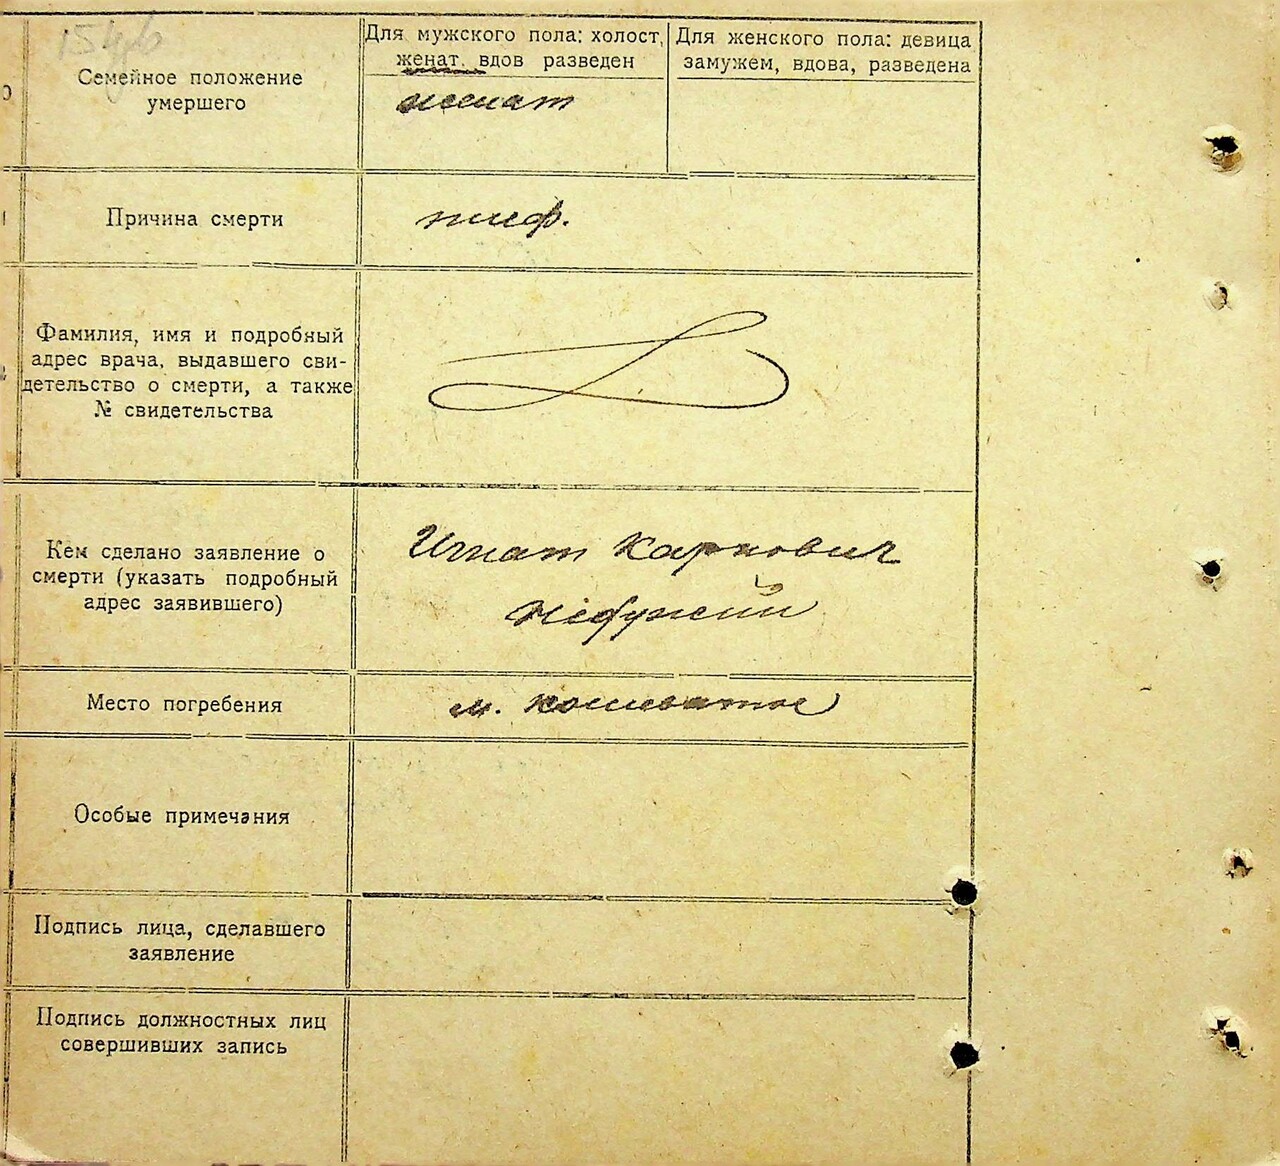 Семейное положение
умершего
Для мужского пола: холост,
женат, вдов разведен
Для женского пола: девица
замужем, вдова, разведена
женат
Причина смерти
тиф.
Фамилия, имя и подробный
адрес врача, выдавшего сви-
детельство о смерти, а также
№ свидетельства
Кем сделано заявление о
смерти (указать подробный
адрес заявившего)
Игнат Карпович
Недужий
Место погребения
м. Кошеватое
Особые примечания
Подпись лица, сделавшего
заявление
Подпись должностных лиц
совершивших запись